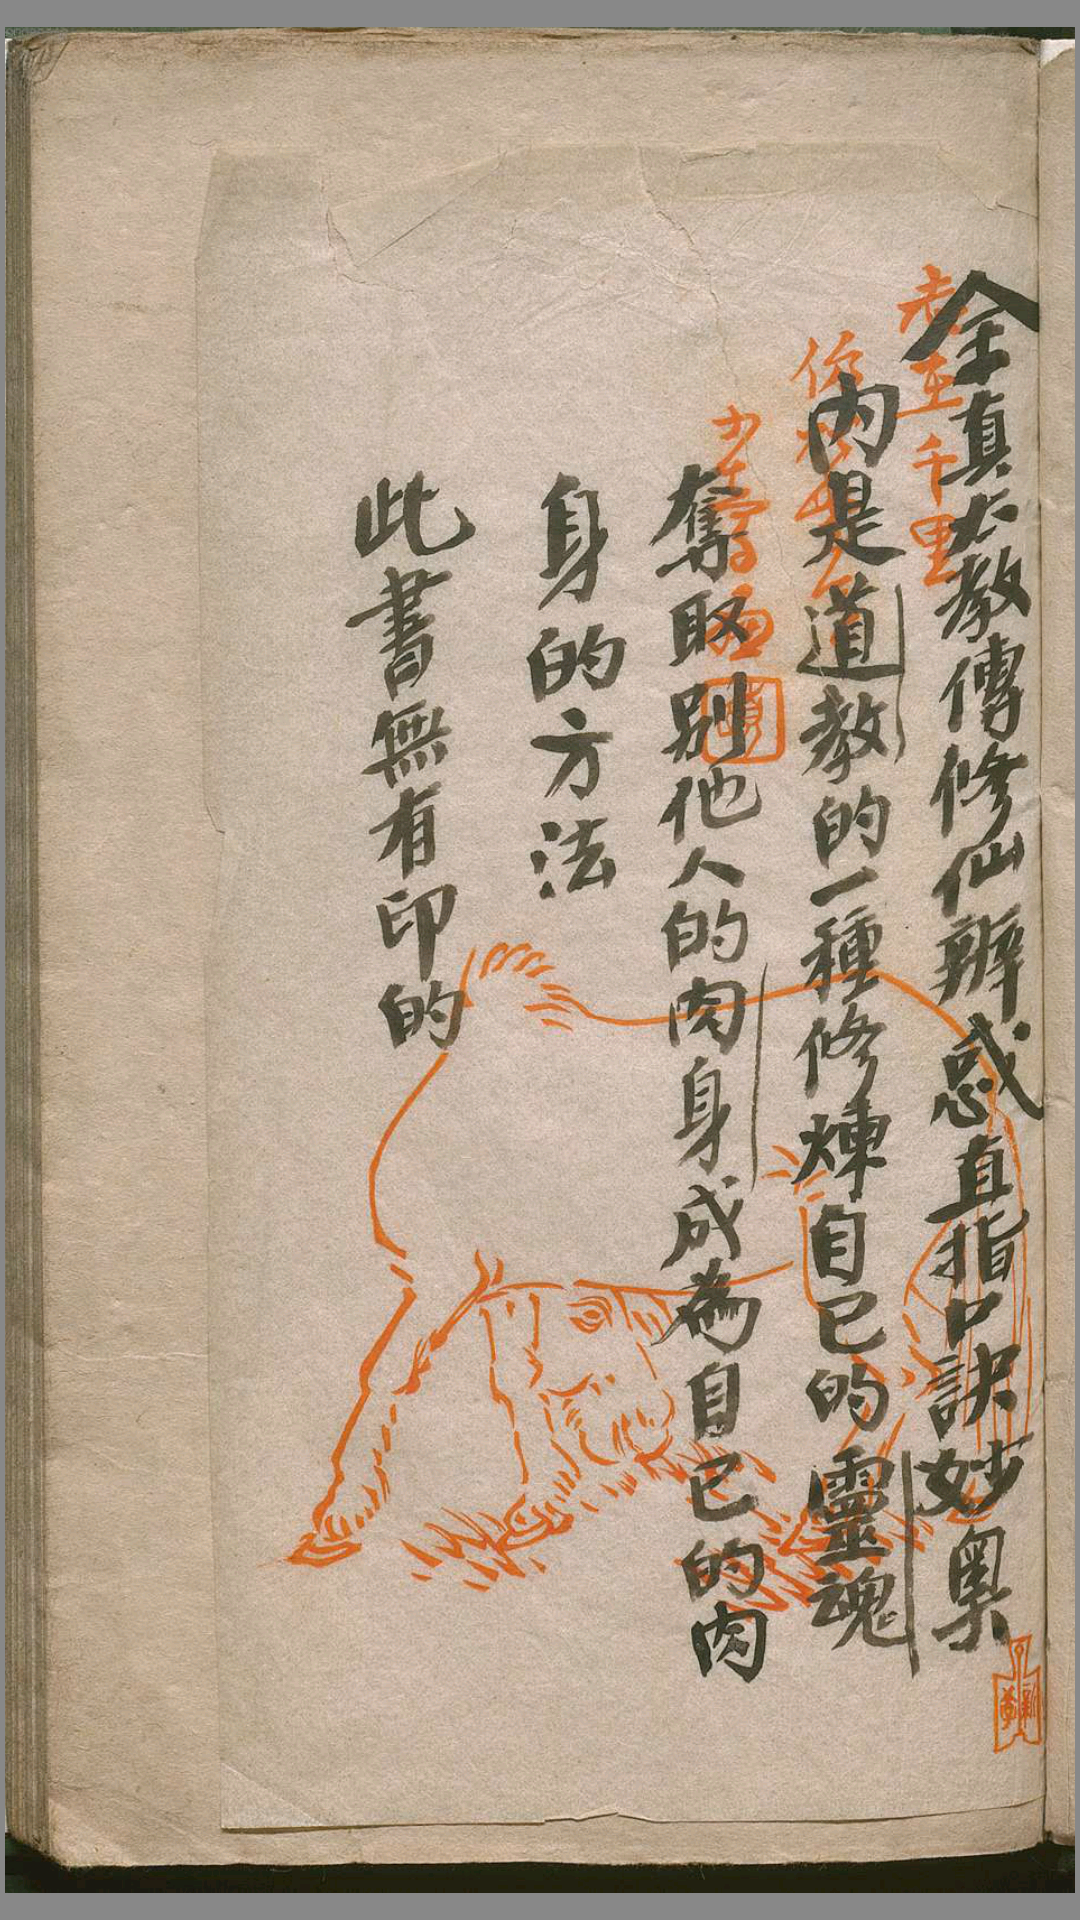 全真大教傳修仙辦惑直指口訣妙奧
內是道教的一種修煉自己的靈魂
奪取別他人的肉身成為自己的肉
身的方法
此書無有印的
千里